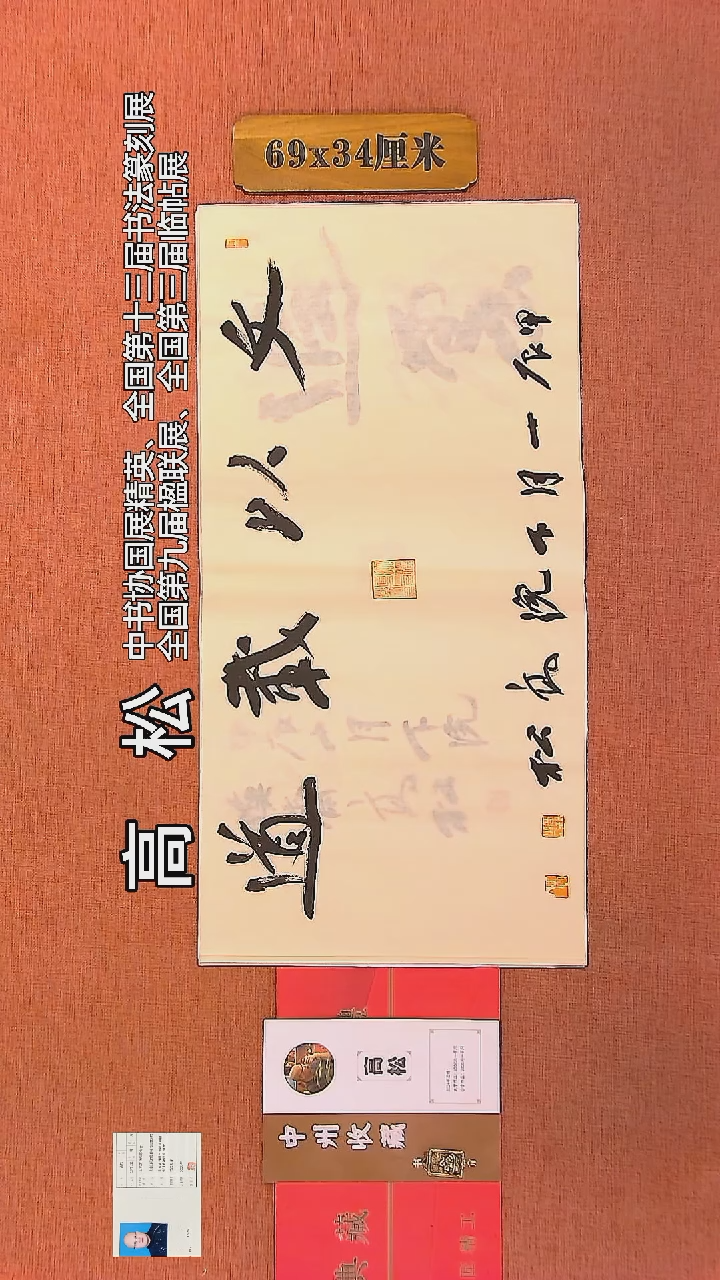 69x34厘米
高 松
中书协国展精英、全国第十三届书法篆刻展
全国第九届楹联展、全国第三届临帖展
文以載道
甲辰一月下浣高松
高松
中州收藏
典藏